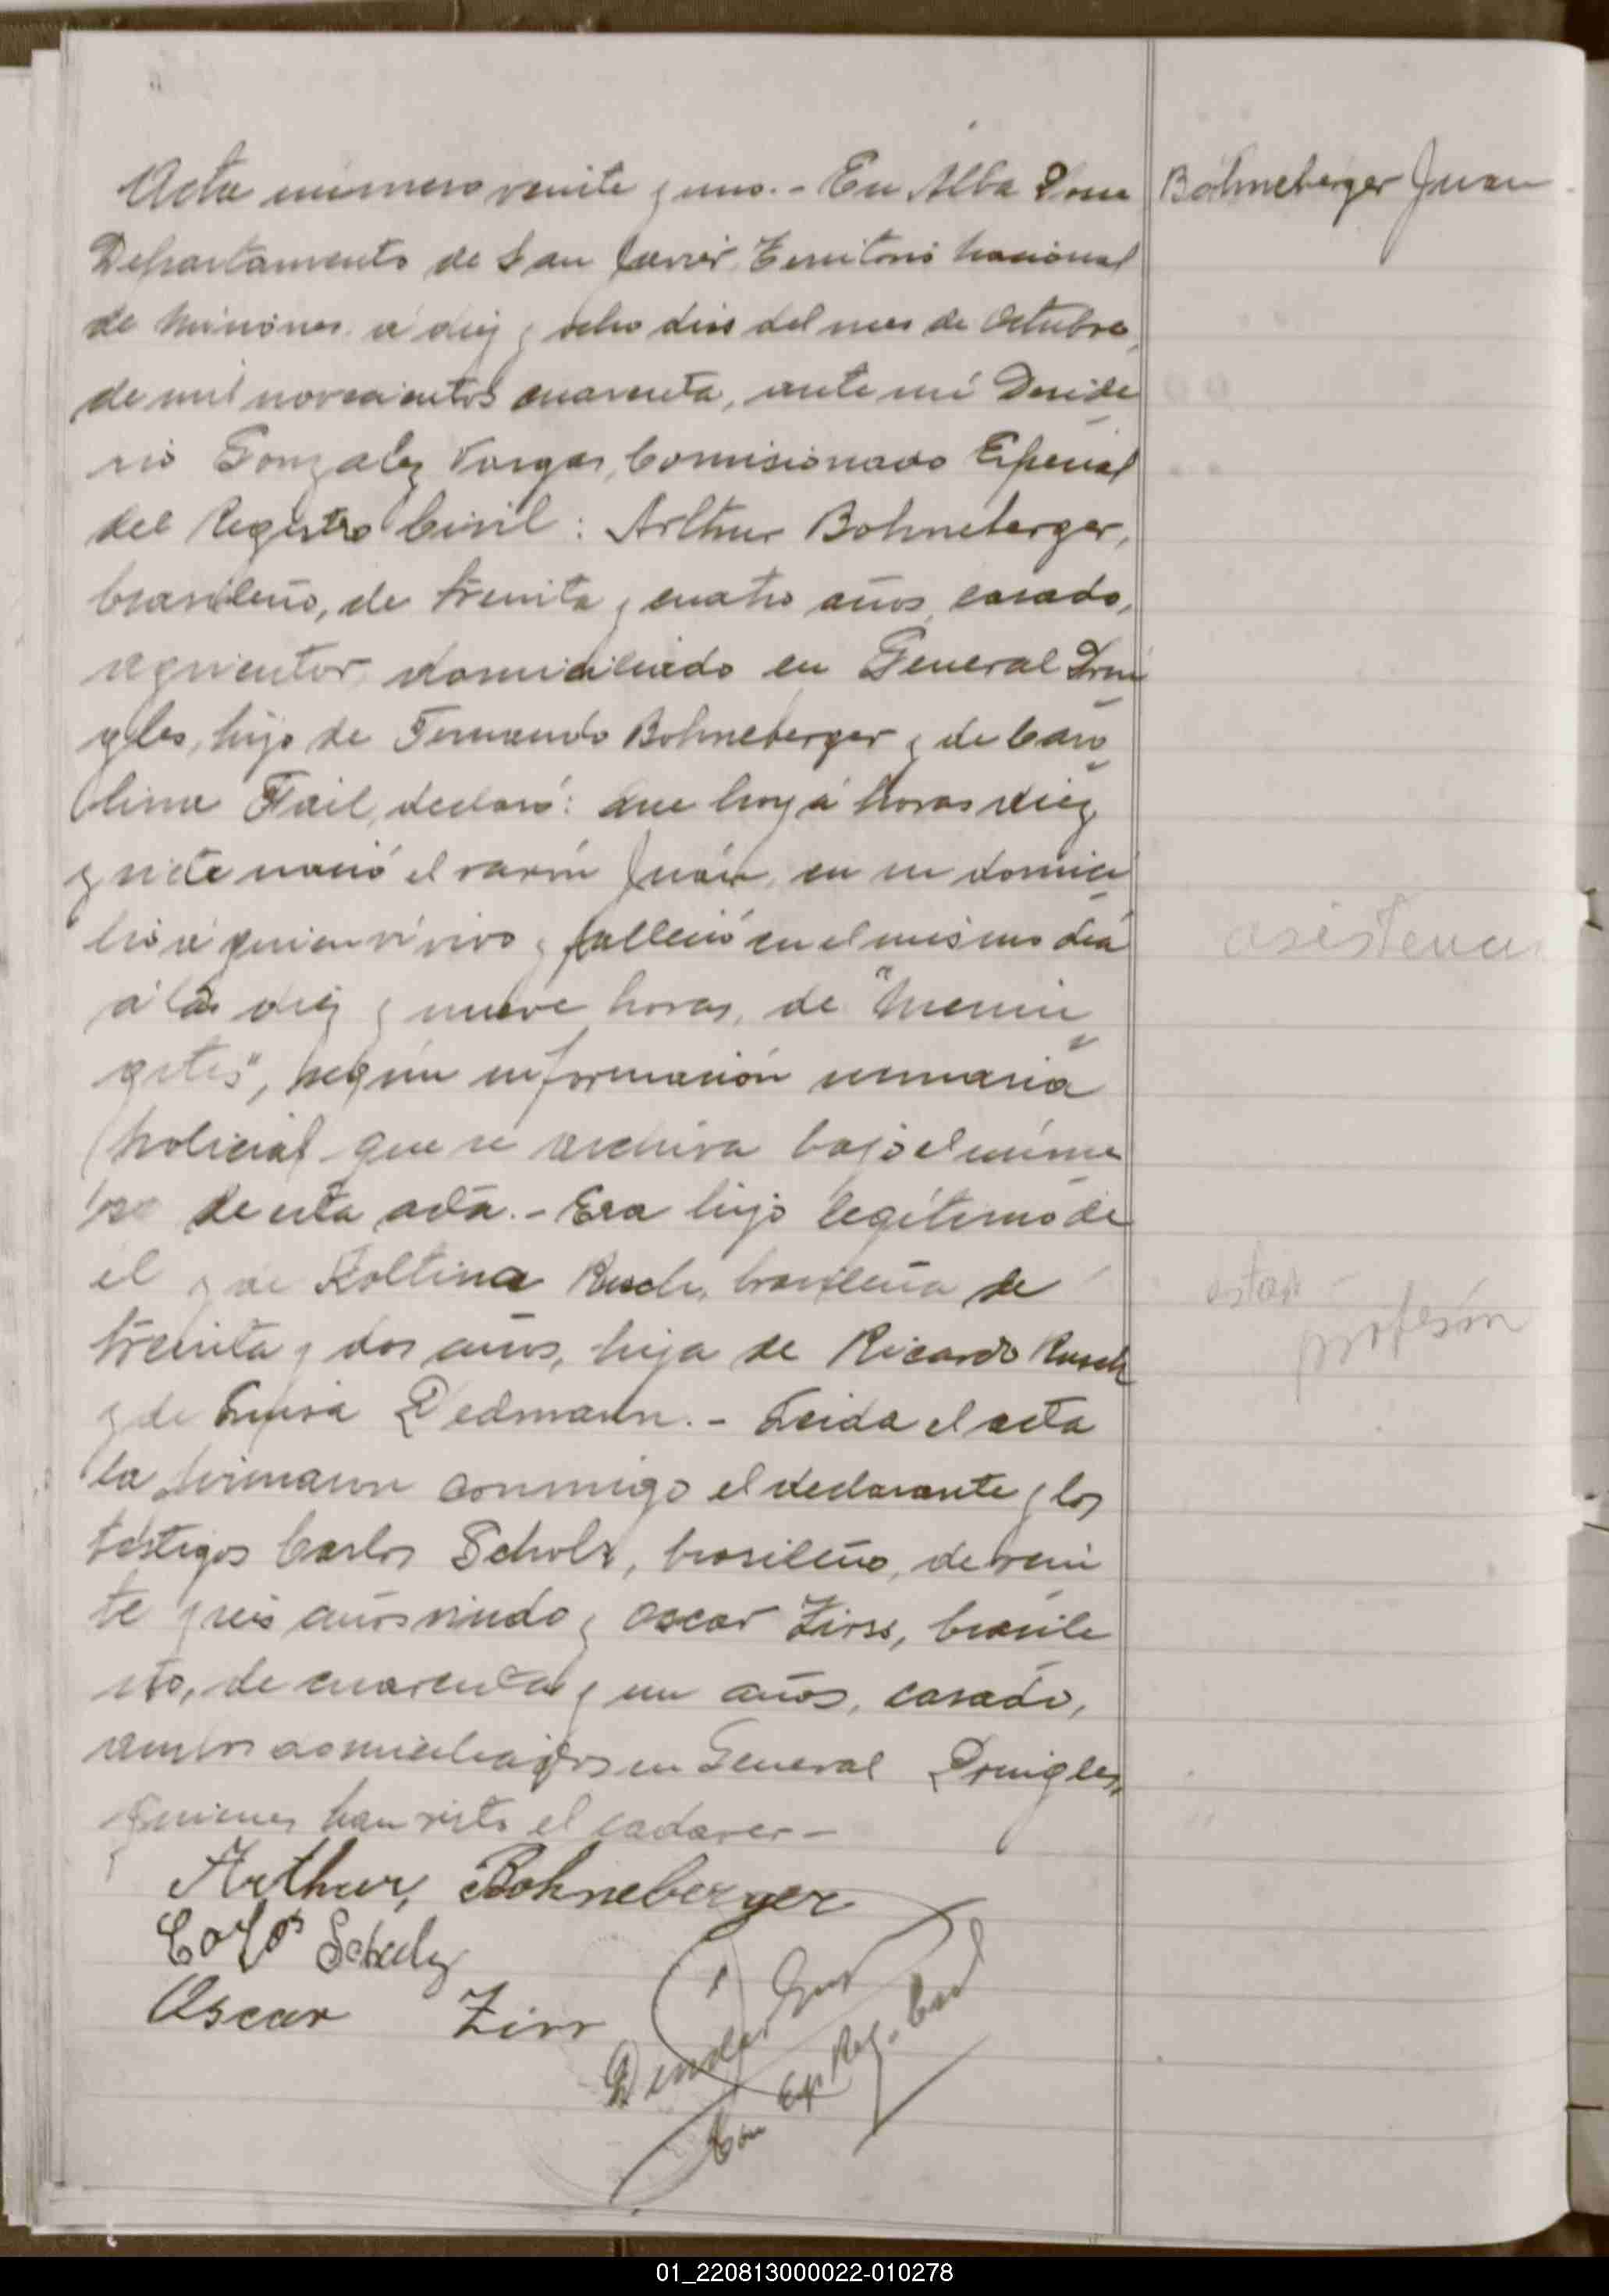 Acta número veinte y uno. - En Alba Posse
Bohneberger Juan
Departamento de San Javier, Territorio Nacional
de Misiones, a diez y ocho dias del mes de Octubre,
de mil novecientos cuarenta, ante mí Deside
rio Gonzalez Vargas, Comisionado Especial
del Registro Civil: Arthur Bohneberger,
brasileño, de treinta y cuatro años, casado,
agricultor, domiciliado en General Prin
gles, hijo de Fernando Bohneberger y de Caro
lina Fail, declaró: Que hoy á horas diez
y siete nació el varón Juán, en su domici
lio á quien ví vivo y falleció en el mismo día
á las diez y nueve horas, de "Menin
gites", según información sumaria
policial que se archiva bajo el núme
ro de esta acta. - Era hijo legítimo de
él y de Koltina Rusch, brasileña de
treinta y dos años, hija de Ricardo Rusch
y de Luisa Dedmann. - Leida el acta
la firmaron conmigo el declarante y los
testigos Carlos Scholz, brasileño, de vein
te y seis años viudo y Oscar Zirss, brasile
ño, de cuarenta y un años, casado,
ambos domiciliados en General Pringles,
quienes han visto el cadaver -
asistencia
estado
profesión
Arthur, Bohneberger
Carlos Schulz
Oscar Zirr
Com Esp Reg. Civil
01_220813000022-010278